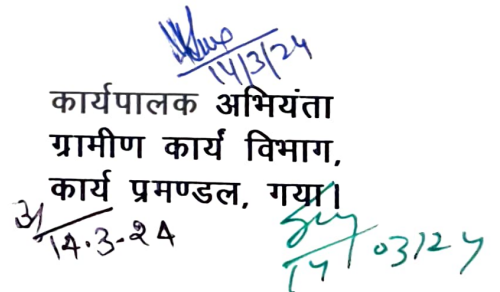 14/3/24
कार्यपालक अभियंता
ग्रामीण कार्य विभाग,
कार्य प्रमण्डल, गया।
14.3-24
14/03/24